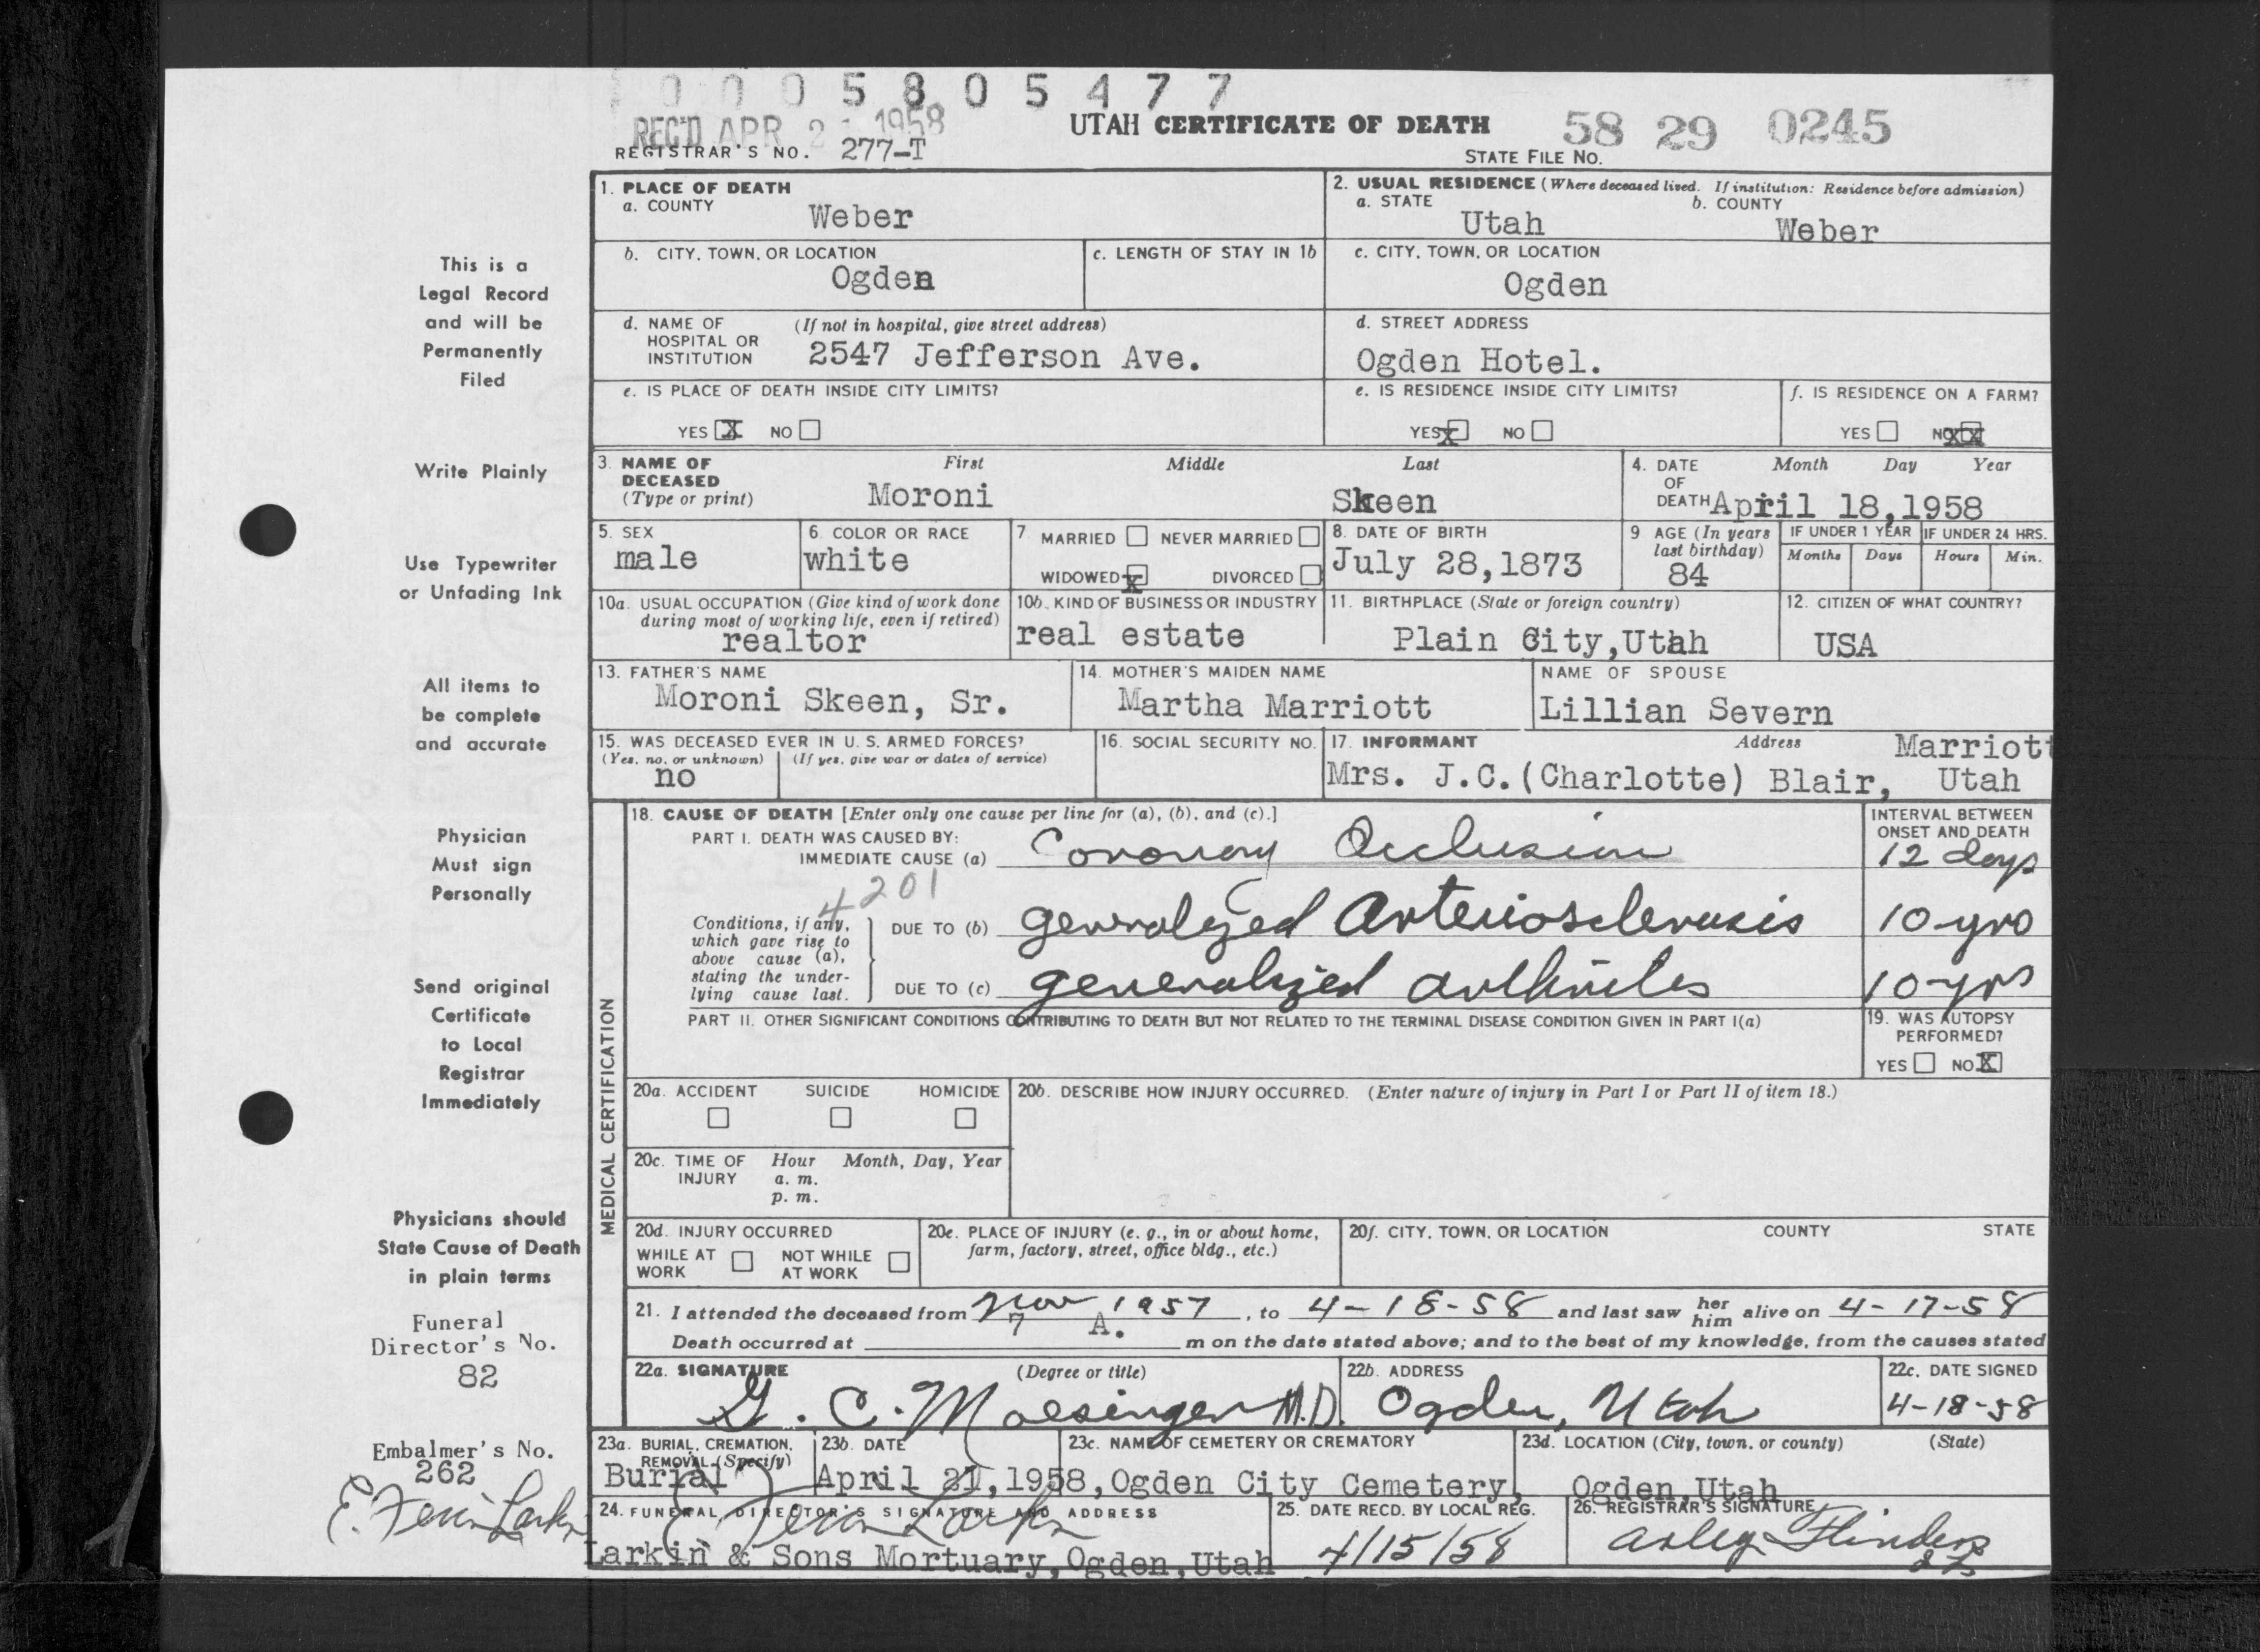 0 0 0 5 8 0 5 4 7 7
REC'D APR 2 1958
UTAH CERTIFICATE OF DEATH
58 29 0245
REGISTRAR'S NO. 277-T
STATE FILE NO.
1. PLACE OF DEATH
a. COUNTY
Weber
2. USUAL RESIDENCE (Where deceased lived. If institution: Residence before admission)
a. STATE
Utah
b. COUNTY
Weber
b. CITY, TOWN, OR LOCATION
Ogden
c. LENGTH OF STAY IN 1b
c. CITY, TOWN, OR LOCATION
Ogden
d. NAME OF HOSPITAL OR INSTITUTION
(If not in hospital, give street address)
2547 Jefferson Ave.
d. STREET ADDRESS
Ogden Hotel.
e. IS PLACE OF DEATH INSIDE CITY LIMITS?
YES X NO
e. IS RESIDENCE INSIDE CITY LIMITS?
YES X NO
f. IS RESIDENCE ON A FARM?
YES NO XX
3. NAME OF DECEASED
(Type or print)
First Middle Last
Moroni Skeen
4. DATE OF DEATH
Month Day Year
April 18,1958
5. SEX
male
6. COLOR OR RACE
white
7 MARRIED NEVER MARRIED
WIDOWED X DIVORCED
8. DATE OF BIRTH
July 28,1873
9 AGE (In years last birthday)
84
IF UNDER 1 YEAR
Months Days
IF UNDER 24 HRS.
Hours Min.
10a. USUAL OCCUPATION (Give kind of work done during most of working life, even if retired)
realtor
10b. KIND OF BUSINESS OR INDUSTRY
real estate
11. BIRTHPLACE (State or foreign country)
Plain City,Utah
12. CITIZEN OF WHAT COUNTRY?
USA
13. FATHER'S NAME
Moroni Skeen, Sr.
14. MOTHER'S MAIDEN NAME
Martha Marriott
NAME OF SPOUSE
Lillian Severn
15. WAS DECEASED EVER IN U. S. ARMED FORCES?
(Yes, no, or unknown) (If yes, give war or dates of service)
no
16. SOCIAL SECURITY NO.
17. INFORMANT Address
Marriott
Mrs. J.C.(Charlotte) Blair, Utah
MEDICAL CERTIFICATION
18. CAUSE OF DEATH [Enter only one cause per line for (a), (b), and (c).]
INTERVAL BETWEEN ONSET AND DEATH
PART I. DEATH WAS CAUSED BY:
IMMEDIATE CAUSE (a) Coronary Occlusion 12 days
4201
Conditions, if any, which gave rise to above cause (a), stating the underlying cause last.
DUE TO (b) generalized Arteriosclerosis 10 yrs
DUE TO (c) generalized arthrites 10 yrs
PART II. OTHER SIGNIFICANT CONDITIONS CONTRIBUTING TO DEATH BUT NOT RELATED TO THE TERMINAL DISEASE CONDITION GIVEN IN PART I(a)
19. WAS AUTOPSY PERFORMED?
YES NO X
20a. ACCIDENT SUICIDE HOMICIDE
20b. DESCRIBE HOW INJURY OCCURRED. (Enter nature of injury in Part I or Part II of item 18.)
20c. TIME OF INJURY
Hour Month, Day, Year
a. m.
p. m.
20d. INJURY OCCURRED
WHILE AT WORK NOT WHILE AT WORK
20e. PLACE OF INJURY (e. g., in or about home, farm, factory, street, office bldg., etc.)
20f. CITY, TOWN, OR LOCATION COUNTY STATE
21. I attended the deceased from Nov 1957, to 4-18-58 and last saw her him alive on 4-17-58
Death occurred at 7 A. m on the date stated above; and to the best of my knowledge, from the causes stated
22a. SIGNATURE (Degree or title)
G. C. Moesinger M.D.
22b. ADDRESS
Ogden, Utah
22c. DATE SIGNED
4-18-58
23a. BURIAL, CREMATION, REMOVAL (Specify)
Burial
23b. DATE
April 21,1958,
23c. NAME OF CEMETERY OR CREMATORY
Ogden City Cemetery,
23d. LOCATION (City, town, or county) (State)
Ogden,Utah
24. FUNERAL DIRECTOR'S SIGNATURE AND ADDRESS
E. Ferrin Larkin
Larkin & Sons Mortuary,Ogden,Utah
25. DATE RECD. BY LOCAL REG.
4/15/58
26. REGISTRAR'S SIGNATURE
Arley Flinders
This is a
Legal Record
and will be
Permanently
Filed
Write Plainly
Use Typewriter
or Unfading Ink
All items to
be complete
and accurate
Physician
Must sign
Personally
Send original
Certificate
to Local
Registrar
Immediately
Physicians should
State Cause of Death
in plain terms
Funeral
Director's No.
82
Embalmer's No.
262
E. Ferrin Larkin